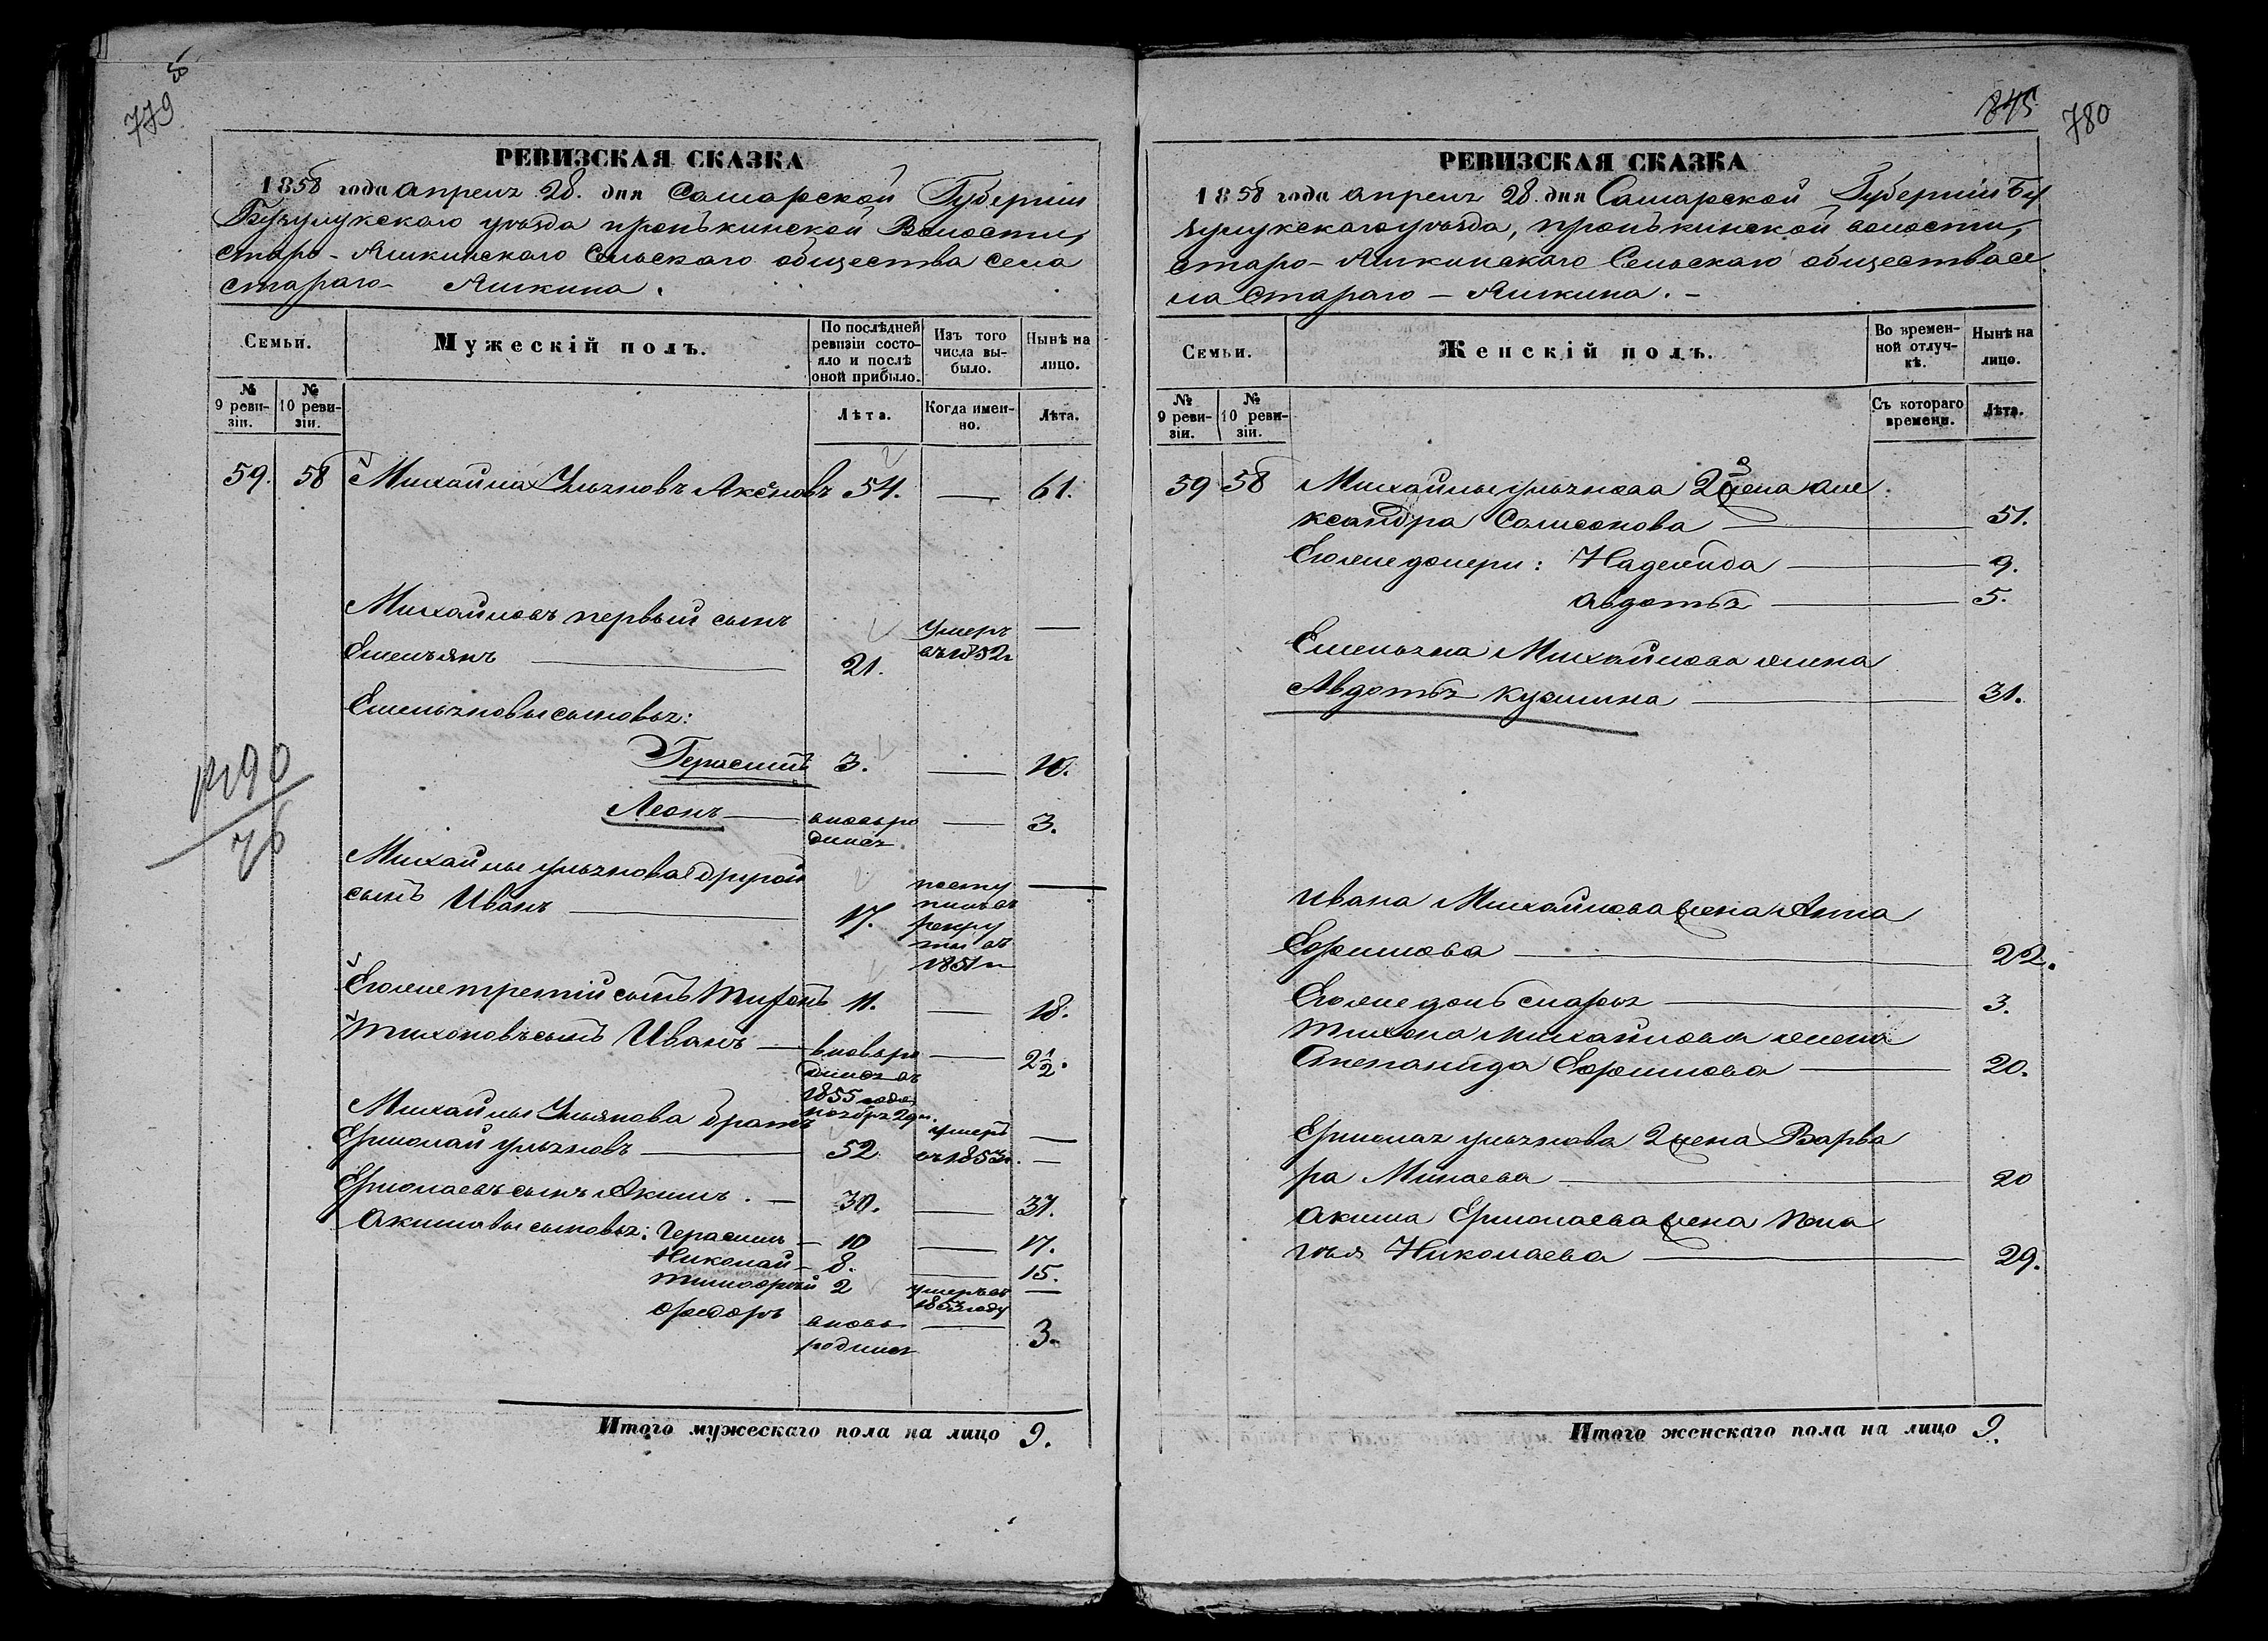 779 об
РЕВИЗСКАЯ СКАЗКА
1858 года апреля 28. дня Самарской Губерніи
Бузулукскаго уѣзда пронькинской Волости,
Старо-Яшкинскаго Сельскаго общества села
Стараго Яшкина.
Семьи.
Мужескій полъ.
По послѣдней
ревизіи состо-
яло и послѣ
оной прибыло.
Изъ того
числа вы-
было.
Нынѣ на
лицо.
№
9 реви-
зіи.
№
10 реви-
зіи.
Лѣта.
Когда имен-
но.
Лѣта.
59. 58 Михайла Ульяновъ Аксёновъ 54. — 61.
Михайловъ первый сынъ
Емельянъ — 21. умеръ въ 1852г —
Емельяновы сыновья:
Герасимъ 3. — 10.
Леонъ — вновь ро
дился — 3.
Михайлы ульянова другой
сынъ Иванъ — 17. посту
пилъ въ
рекру
ты въ
1851 г —
Еголже третій сынъ Тихонъ 11. — 18.
Тихоновъ сынъ Иванъ — вновь ро
дился въ
1855 года
ноября 29 ч. — 2 1/2.
Михайлы Ульянова братъ
Ермолай ульяновъ — 52 умеръ
въ 1853г. —
Ермолаевъ сынъ Акимъ. — 30. — 37.
Акимовы сыновья: Герасимъ — 10 — 17.
Николай — 8. — 15.
Тимофей 2 умеръ въ
году —
Федоръ вновь
родился — 3.
Итого мужескаго пола на лицо 9.
1190
76
845 780
РЕВИЗСКАЯ СКАЗКА
1858 года апреля 28. дня Самарской Губерніи Бу
зулукскаго уѣзда, пронькинской волости,
Старо-Яшкинскаго Сельскаго общества се
ла Стараго — Яшкина. —
Семьи.
Женскій полъ.
Во времен-
ной отлуч-
кѣ.
Нынѣ на
лицо.
№
9 реви-
зіи.
№
10 реви-
зіи.
Съ котораго
времени.
Лѣта.
59 58 Михайлы ульянова 2 жена але
ксандра Самсонова — 51.
Еголже дочери: Надежда — 9.
Авдотья — 5.
Емельяна Михайлова жена
Авдотья кузмина — 31.
Ивана Михайлова жена Анна
Ефимова — 22.
Еголже дочь марья — 3.
Тихона михайлова жена
Степанида Ефимова — 20.
Ермолая ульянова 2 жена Варва
ра Минаева — 20
Акима Ермолаева жена Пела
гѣя Николаева — 29.
Итого женскаго пола на лицо 9.